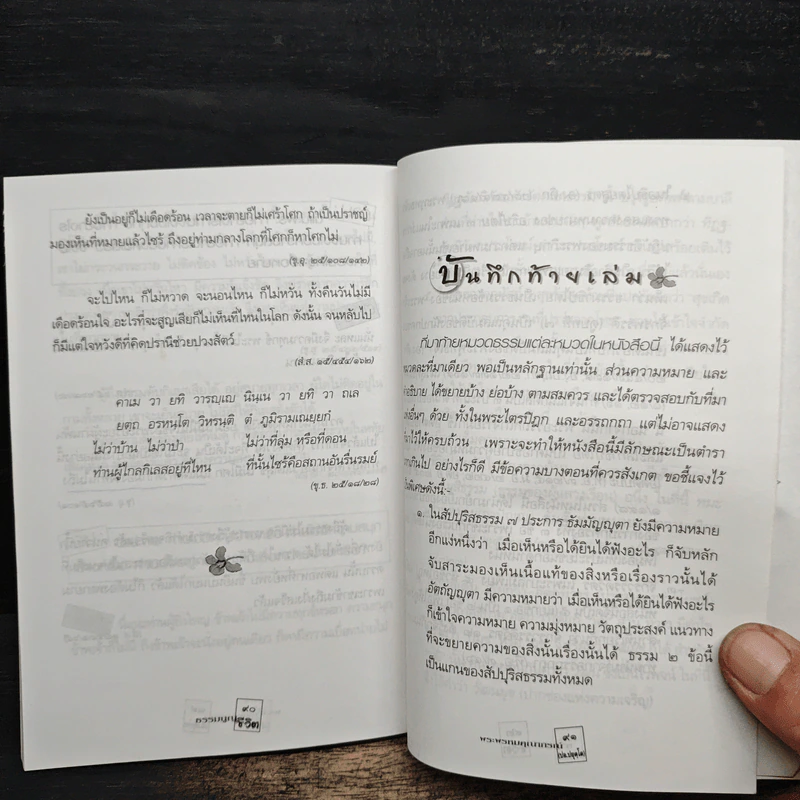 ยังเป็นอยู่ก็ไม่เดือดร้อน เวลาจะตายก็ไม่เศร้าโศก ถ้าเป็นปราชญ์
มองเห็นที่หมายแล้วไซร้ ถึงอยู่ท่ามกลางโลกที่โศกก็หาโศกไม่
(ขุ.อุ. ๒๕/๑๐๘/๑๔๒)
จะไปไหน ก็ไม่หวาด จะนอนไหน ก็ไม่หวั่น ทั้งคืนวันไม่มี
เดือดร้อนใจ อะไรที่จะสูญเสียก็ไม่เห็นที่ไหนในโลก ดังนั้น จนหลับไป
ก็มีแต่ใจหวังดีที่คิดปรานีช่วยปวงสัตว์
(สํ.ส. ๑๕/๔๕๔/๑๖๒)
คาเม วา ยทิ วารญฺเญ นินฺเน วา ยทิ วา ถเล
ยตฺถ อรหนฺโต วิหรนฺติ ตํ ภูมิรามเณยฺยกํ
ไม่ว่าบ้าน ไม่ว่าป่า ไม่ว่าที่ลุ่ม หรือที่ดอน
ท่านผู้ไกลกิเลสอยู่ที่ไหน ที่นั้นไซร้คือสถานอันรื่นรมย์
(ขุ.ธ. ๒๕/๑๘/๒๘)
๙๐
ธรรมนูญ ชีวิต
บันทึกท้ายเล่ม
ที่มาท้ายหมวดธรรมแต่ละหมวดในหนังสือนี้ ได้แสดงไว้
หมวดละที่มาเดียว พอเป็นหลักฐานเท่านั้น ส่วนความหมาย และ
คำอธิบาย ได้ขยายบ้าง ย่อบ้าง ตามสมควร และได้ตรวจสอบกับที่มา
แห่งอื่นๆ ด้วย ทั้งในพระไตรปิฎก และอรรถกถา แต่ไม่อาจแสดง
ไว้ให้ครบถ้วน เพราะจะทำให้หนังสือนี้มีลักษณะเป็นตำรา
มากเกินไป อย่างไรก็ดี มีข้อความบางตอนที่ควรสังเกต ขอชี้แจงไว้
เป็นพิเศษดังนี้:-
๑. ในสัปปุริสธรรม ๗ ประการ ธัมมัญญุตา ยังมีความหมาย
อีกแง่หนึ่งว่า เมื่อเห็นหรือได้ยินได้ฟังอะไร ก็จับหลัก
จับสาระมองเห็นเนื้อแท้ของสิ่งหรือเรื่องราวนั้นได้
อัตถัญญุตา มีความหมายว่า เมื่อเห็นหรือได้ยินได้ฟังอะไร
ก็เข้าใจความหมาย ความมุ่งหมาย วัตถุประสงค์ แนวทาง
ที่จะขยายความของสิ่งนั้นเรื่องนั้นได้ ธรรม ๒ ข้อนี้
เป็นแกนของสัปปุริสธรรมทั้งหมด
๙๑
พระพรหมคุณาภรณ์ (ป.อ.ปยุตฺโต)